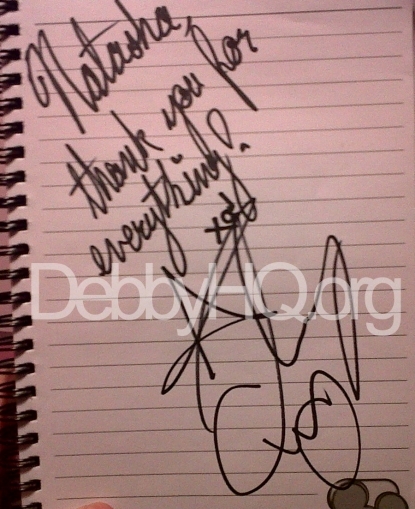 Natasha,
thank you for
everything!
xoxo
DebbyHQ.org